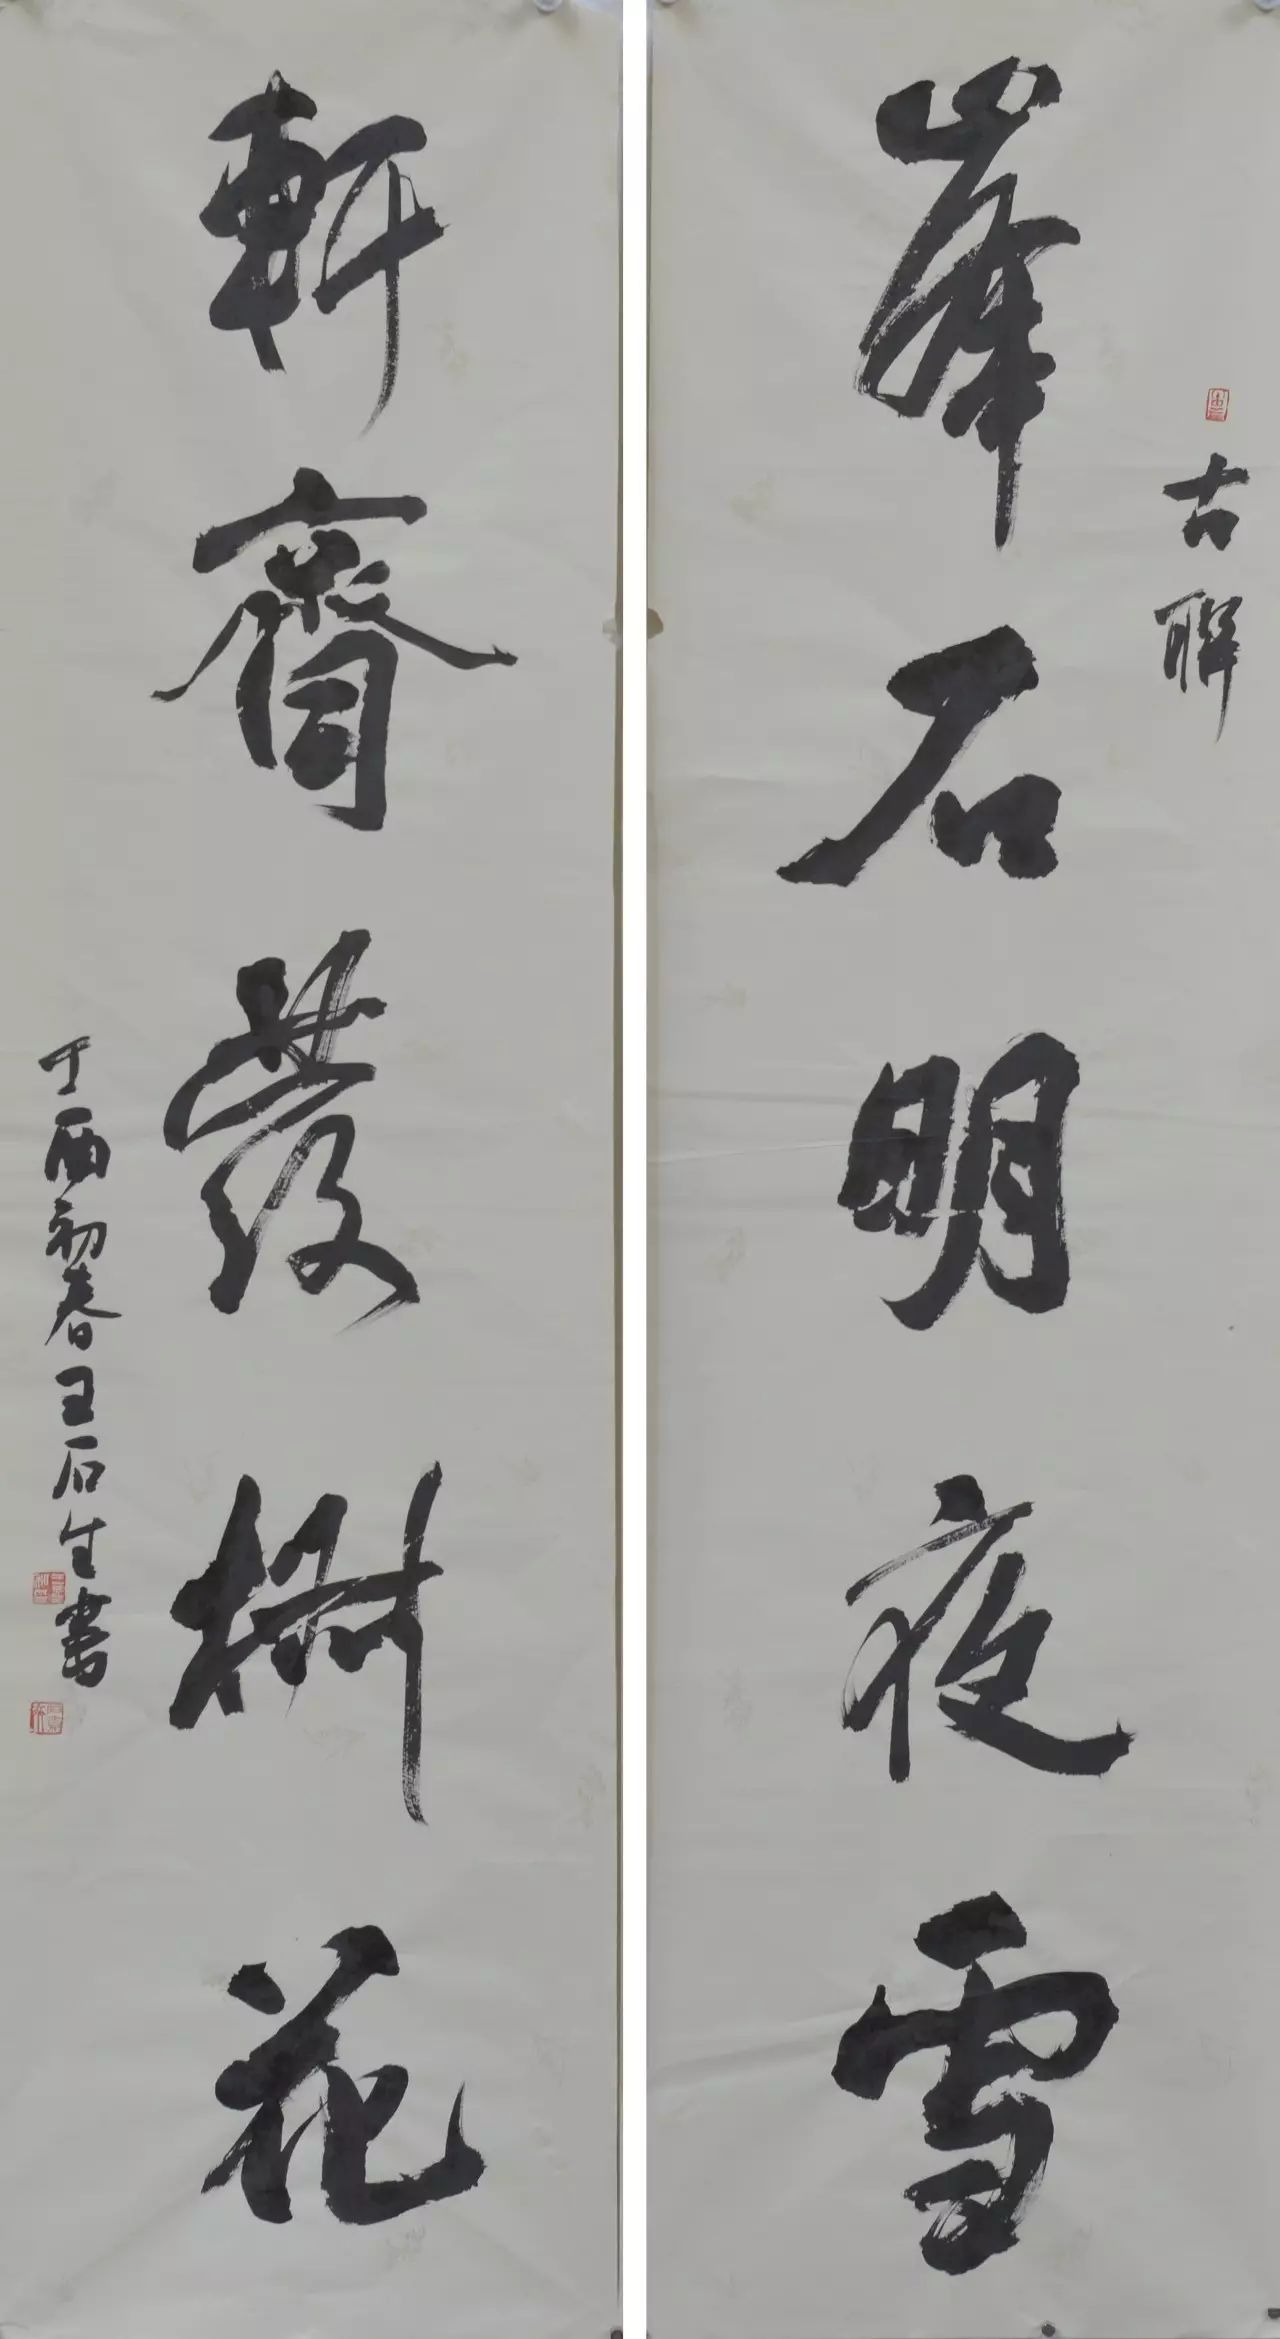 古聯
峯石明夜雪
軒齋發樹花
丁酉初春王石生書